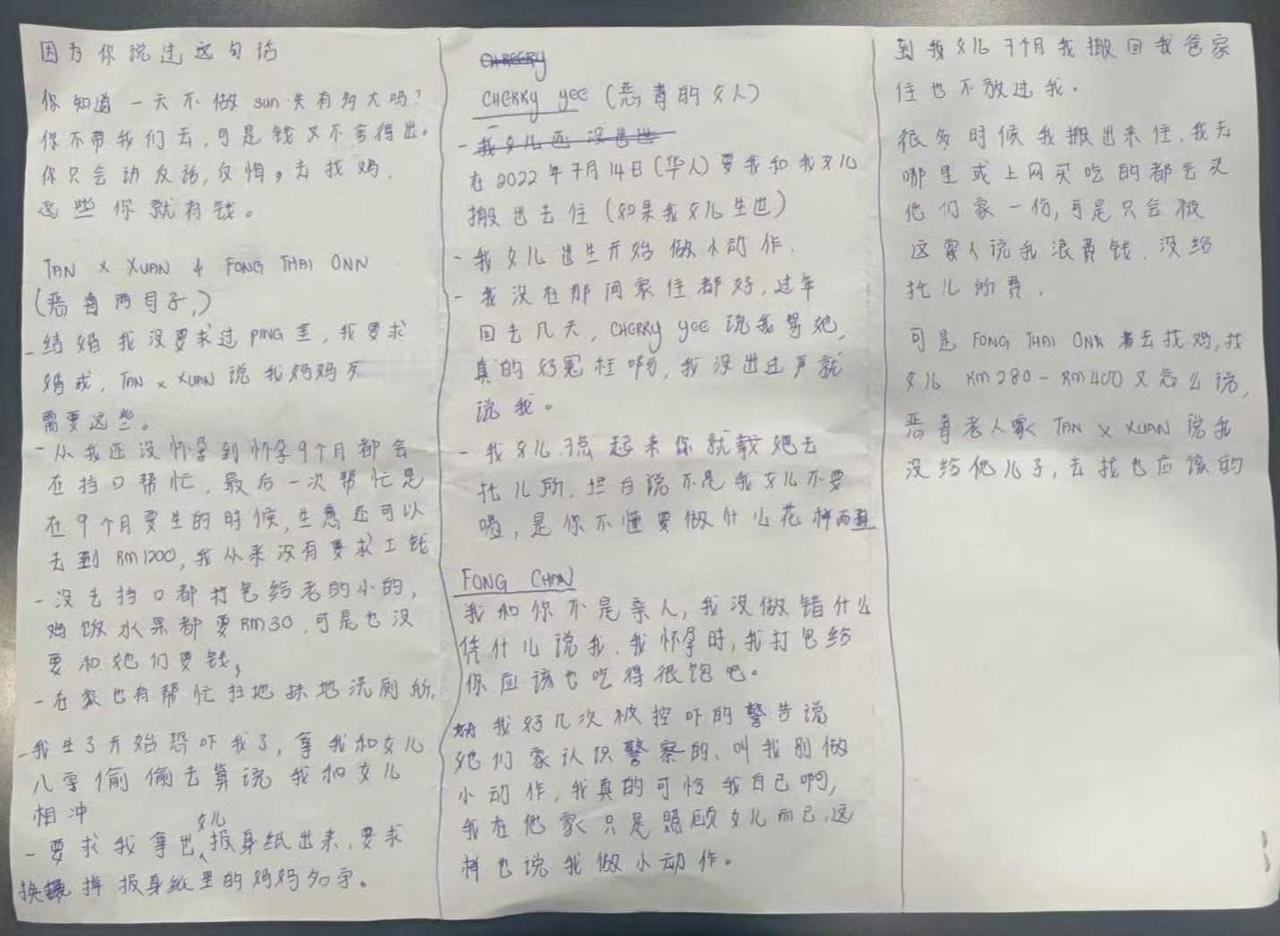 因为你说过这句话
你知道一天不做 sun 失有多大吗？
你不带我们去，可是钱又不舍得出。
你只会动友话，皮怕，去找鸡，
这些你就有钱。
TAN X XUAN & FONG THAI ONN
(恶毒两母子,)
- 结婚我没要求过 PING 金，我要求
婚戒，TAN X XUAN 说我妈妈死
需要这些。
- 从我还没怀孕到怀孕9个月都会
在挡口帮忙，最后一次帮忙是
在9个月要生的时候，生意还可以
去到 RM1200，我从来没有要求工钱
- 没去挡口都打包给老的小的，
鸡饭水果都要RM30，可是也没
要和她们要钱，
- 在家也有帮忙扫地抹地洗厕所，
- 我生了开始恐吓我了，拿我和女儿
八字偷偷去算说我和女儿
相冲
- 要求我拿出女儿报身纸出来，要求
换掉报身纸里的妈妈名字。
CHERRY yee (恶毒的女人)
- 我女儿还没出世
在2022年7月14日(华人)要我和我女儿
搬出去住(如果我女儿生出)
- 我女儿出生开始做小动作．
- 我没在那间家住都好，过年
回去几天，CHERRY yee 说我骂她，
真的好冤枉啊，我没出过声就
说我。
- 我女儿 点起来你就载她去
托儿所，坦白说不是我女儿不要
喝，是你不懂要做什么花样而已
FONG CHAN
我和你不是亲人，我没做错什么
凭什么说我，我怀孕时，我打包给
你应该也吃得很饱吧。
我好几次被控吓的警告说
她们家认识警察的，叫我别做
小动作，我真的可怜我自己啊，
我在他家只是照顾女儿而已，这
样也说我做小动作。
到我女儿7个月我搬回我爸家
住也不放过我。
很多时候我搬出来住，我去
哪里或上网买吃的都会买
他们家一份，可是只会被
这家人说我浪费钱，没给
托儿所费．
可是 FONG THAI ONN 去找鸡，找
女儿 RM280 - RM400 又怎么说，
恶毒老人家 TAN X XUAN 说我
没给他儿子，去找也应该的